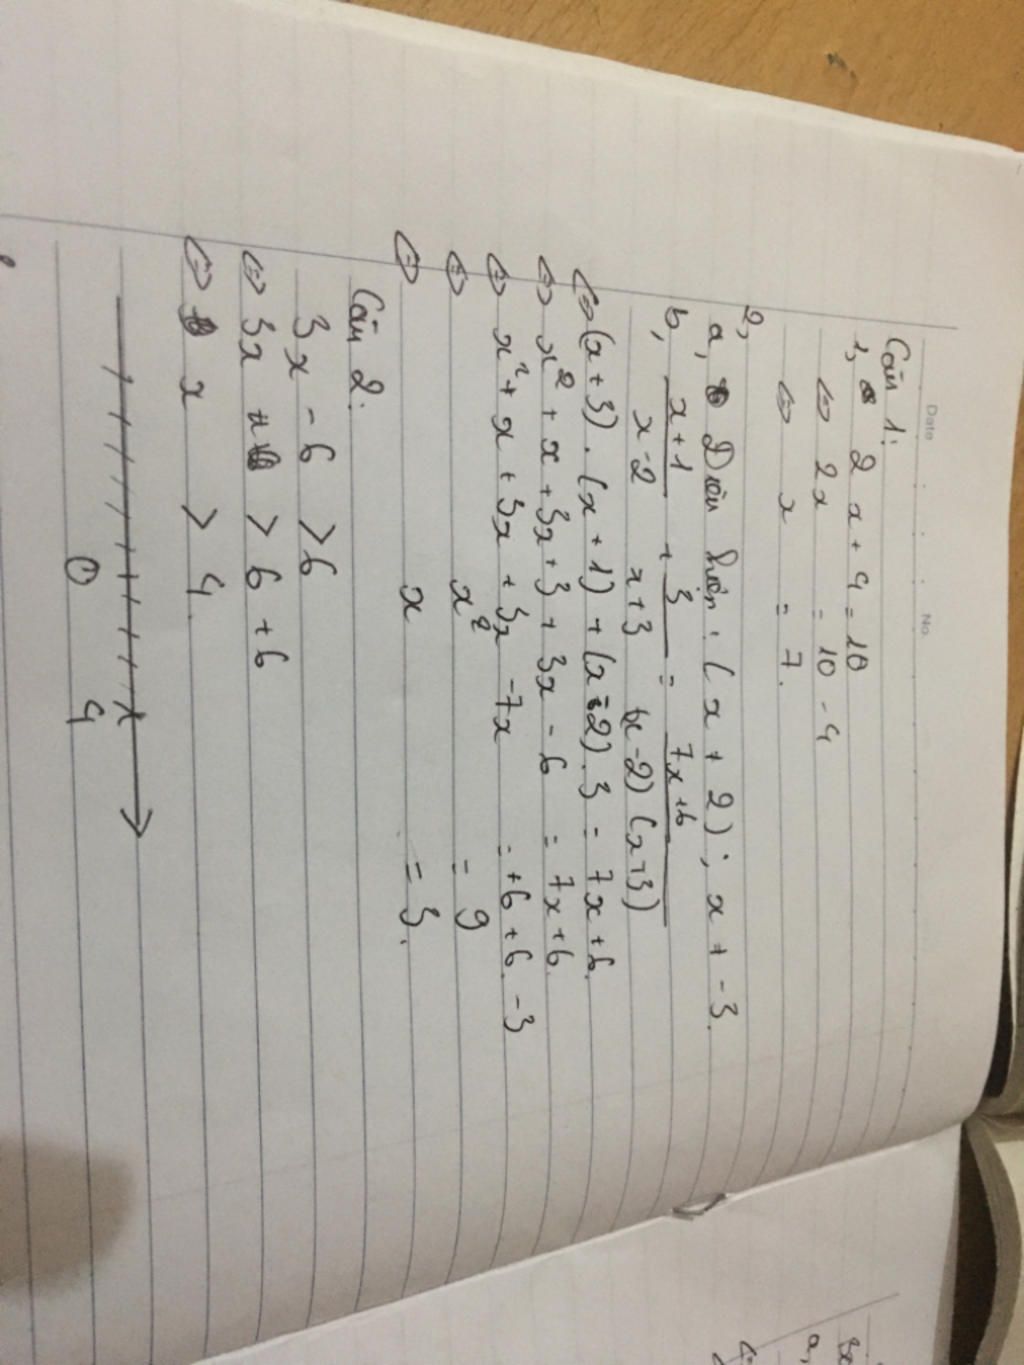 Date No.
Câu 1:
1, 2x + 4 = 10
<=> 2x = 10 - 4
<=> x = 7.
2,
a, Điều kiện: (x + 2); x + -3.
b, \frac{x+1}{x-2} + \frac{3}{x+3} = \frac{7x+6}{(x-2)(x+3)}
<=> (x+3).(x+1) + (x-2).3 = 7x+6.
<=> x² + x + 3x + 3 + 3x - 6 = 7x+6.
<=> x² + x + 3x + 3x - 7x = +6 + 6 - 3
<=> x² = 9
<=> x = 3.
Câu 2:
3x - 6 > 6
<=> 3x > 6 + 6
<=> x > 4.
0 4